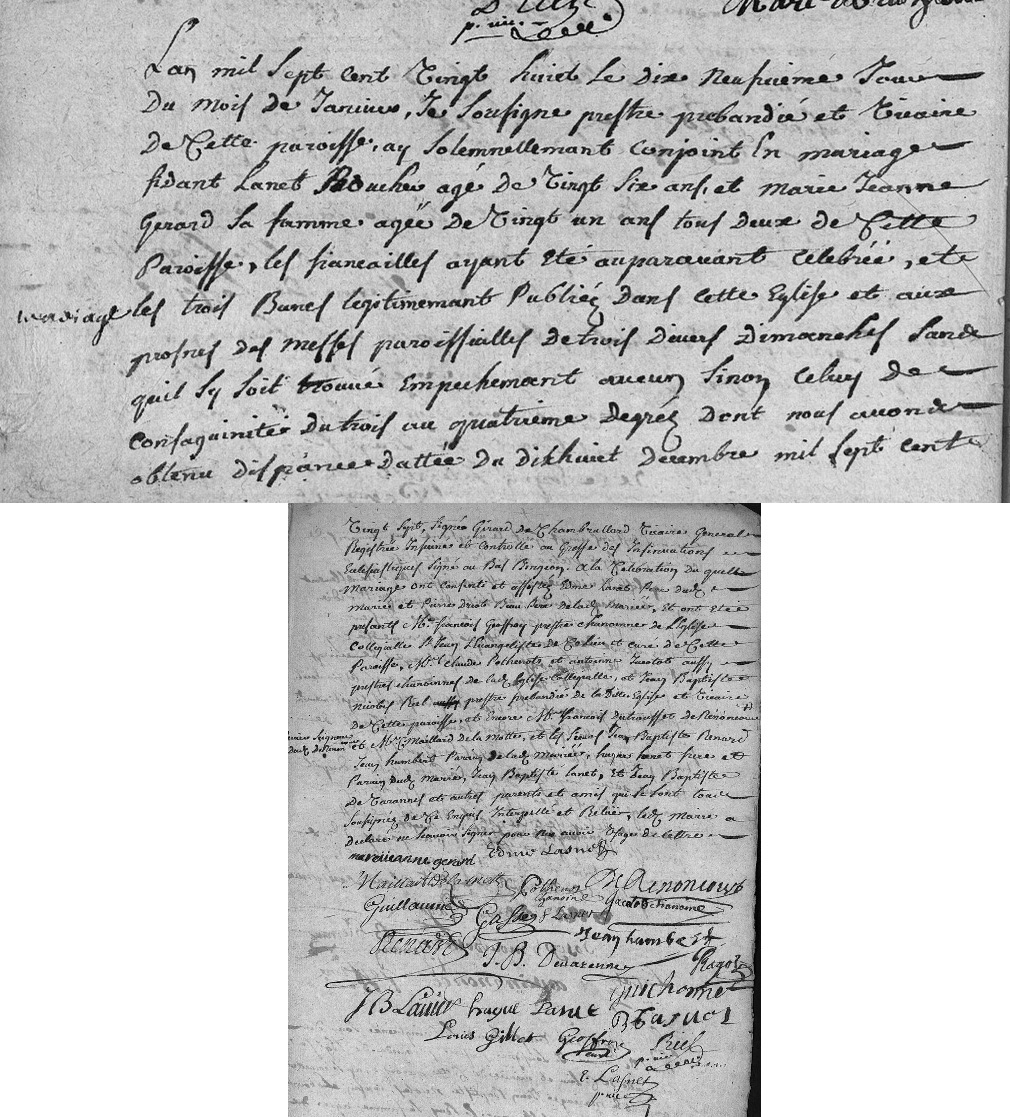 p. vic.
Lan mil Sept Cent Vingt huict le dix Neufvieme Jour
Du Mois de Janvier, Je Sousigne prestre prebandié et Vicaire
de Cette paroisse, ay Solemnellemant Conjoint En mariage
Lanet agé de Vingt Six ans, et Marie Jeanne
Gerard Sa famme agéé de Vingt un ans tous deux de Cette
Paroisse, les fiancailles ayant Eté auparavant Celebréé, et
mariage
les trois Bancs legitimemant Publiéz Dans Cette Eglise et aux
prosnes des Messes paroissialles de trois divers Dimanches Sans
quil Sy Soit trouvé Empechemant aucun Sinon Celuy de
Consaguinité du trois au quatrieme degréz Dont nous avons
obtenu dispance dattéé du dixhuict decembre mil Sept Cent
Vingt Sept, Signéé Girard de Chambrullard Vicaire General
Registréé Insinué et Controllé au Greffe des Insinuations
Eclesiastiques Signé au Bas Pingeon. a la Celebration du quel
Mariage ont Consenti et assistéz Edme Lanet Pere dud.
Marié et Pierre Driot Beau Pere de lad. Mariéé, Et ont Eté
présants Mre. francois Geoffroy prestre Chanoinne de L'Eglise
Collegialle St. Jean L'Evangeliste de et curé de Cette
Paroisse, Mre. Claude Pothenot et antoinne Jacotot aussy
prestres Chanoinnes de lad. Eglise Collegialle, et Jean Baptiste
Nicolas Riel prestre prebandié de la ditte Eglise et Vicaire
de Cette paroisse, et Encore Mre. francois de Renoncourt
et Mre. Maillard de la Motte, et les Sieurs Jean Baptiste Renard
Jean humbert Parain de lad. Mariéé, hugue Lanet frere et
Parain dud. Marié, Jean Baptiste Lanet, Et Jean Baptiste
De Varannes et autres parents et amis qui Se Sont tous
Soussignéz de Ce Enquis Interpellé et Relüe, led. Marié a
declaré ne Scavoir Signer pour nen avoir Usage de lettre
marieianne gerard Edme Lasnet
Maillard De Lamotte Pothenot chanoine De Renoncourt
Guillaume Jacotot chanoine
Jean humbert
Renard J. B. Devarenne Ragot
Guichonne
JB Lanet hugue Lanet
Louis Gillet Geoffroy curé Riel
p. vic.
E. Lasnet